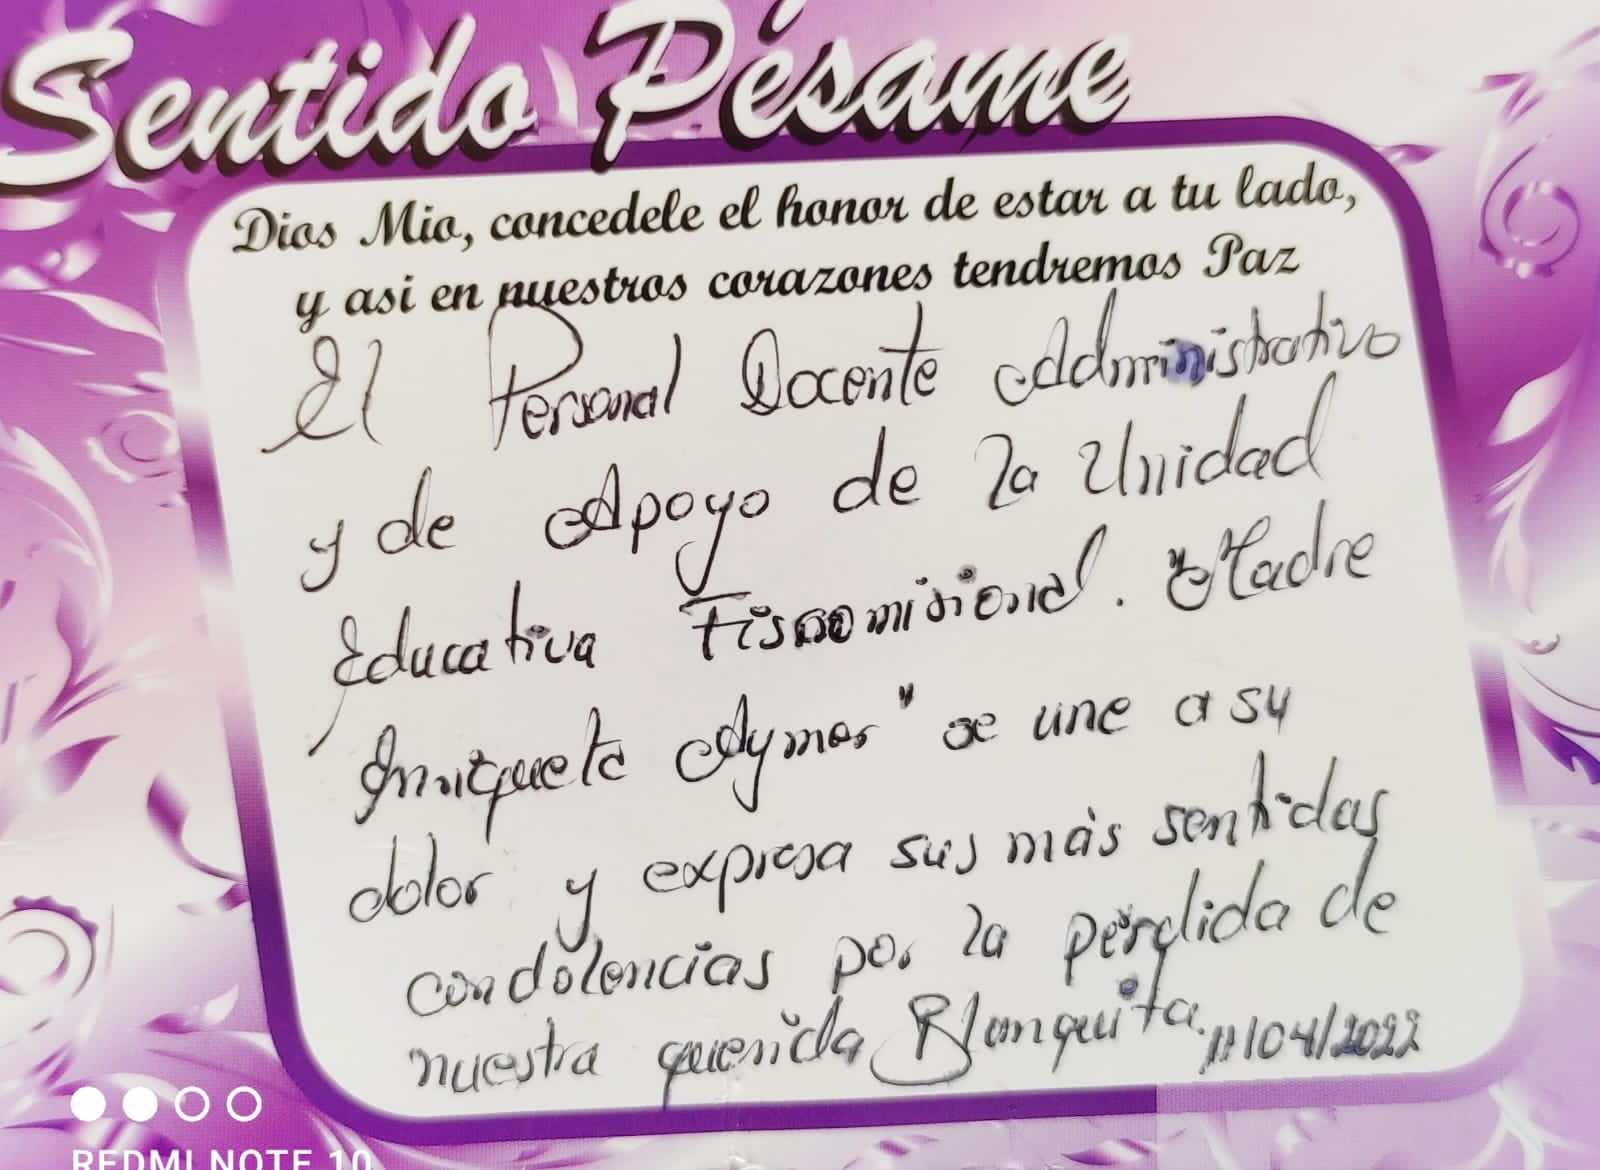 Sentido Pésame
Dios Mio, concedele el honor de estar a tu lado,
y asi en nuestros corazones tendremos Paz
El Personal Docente Administrativo
y de Apoyo de la Unidad
Educativa Fiscomisional. "Madre
Enriqueta Aymer" se une a su
dolor y expresa sus más sentidas
condolencias por la pérdida de
nuestra querida Blanquita. 11/04/2022
REDMI NOTE 10